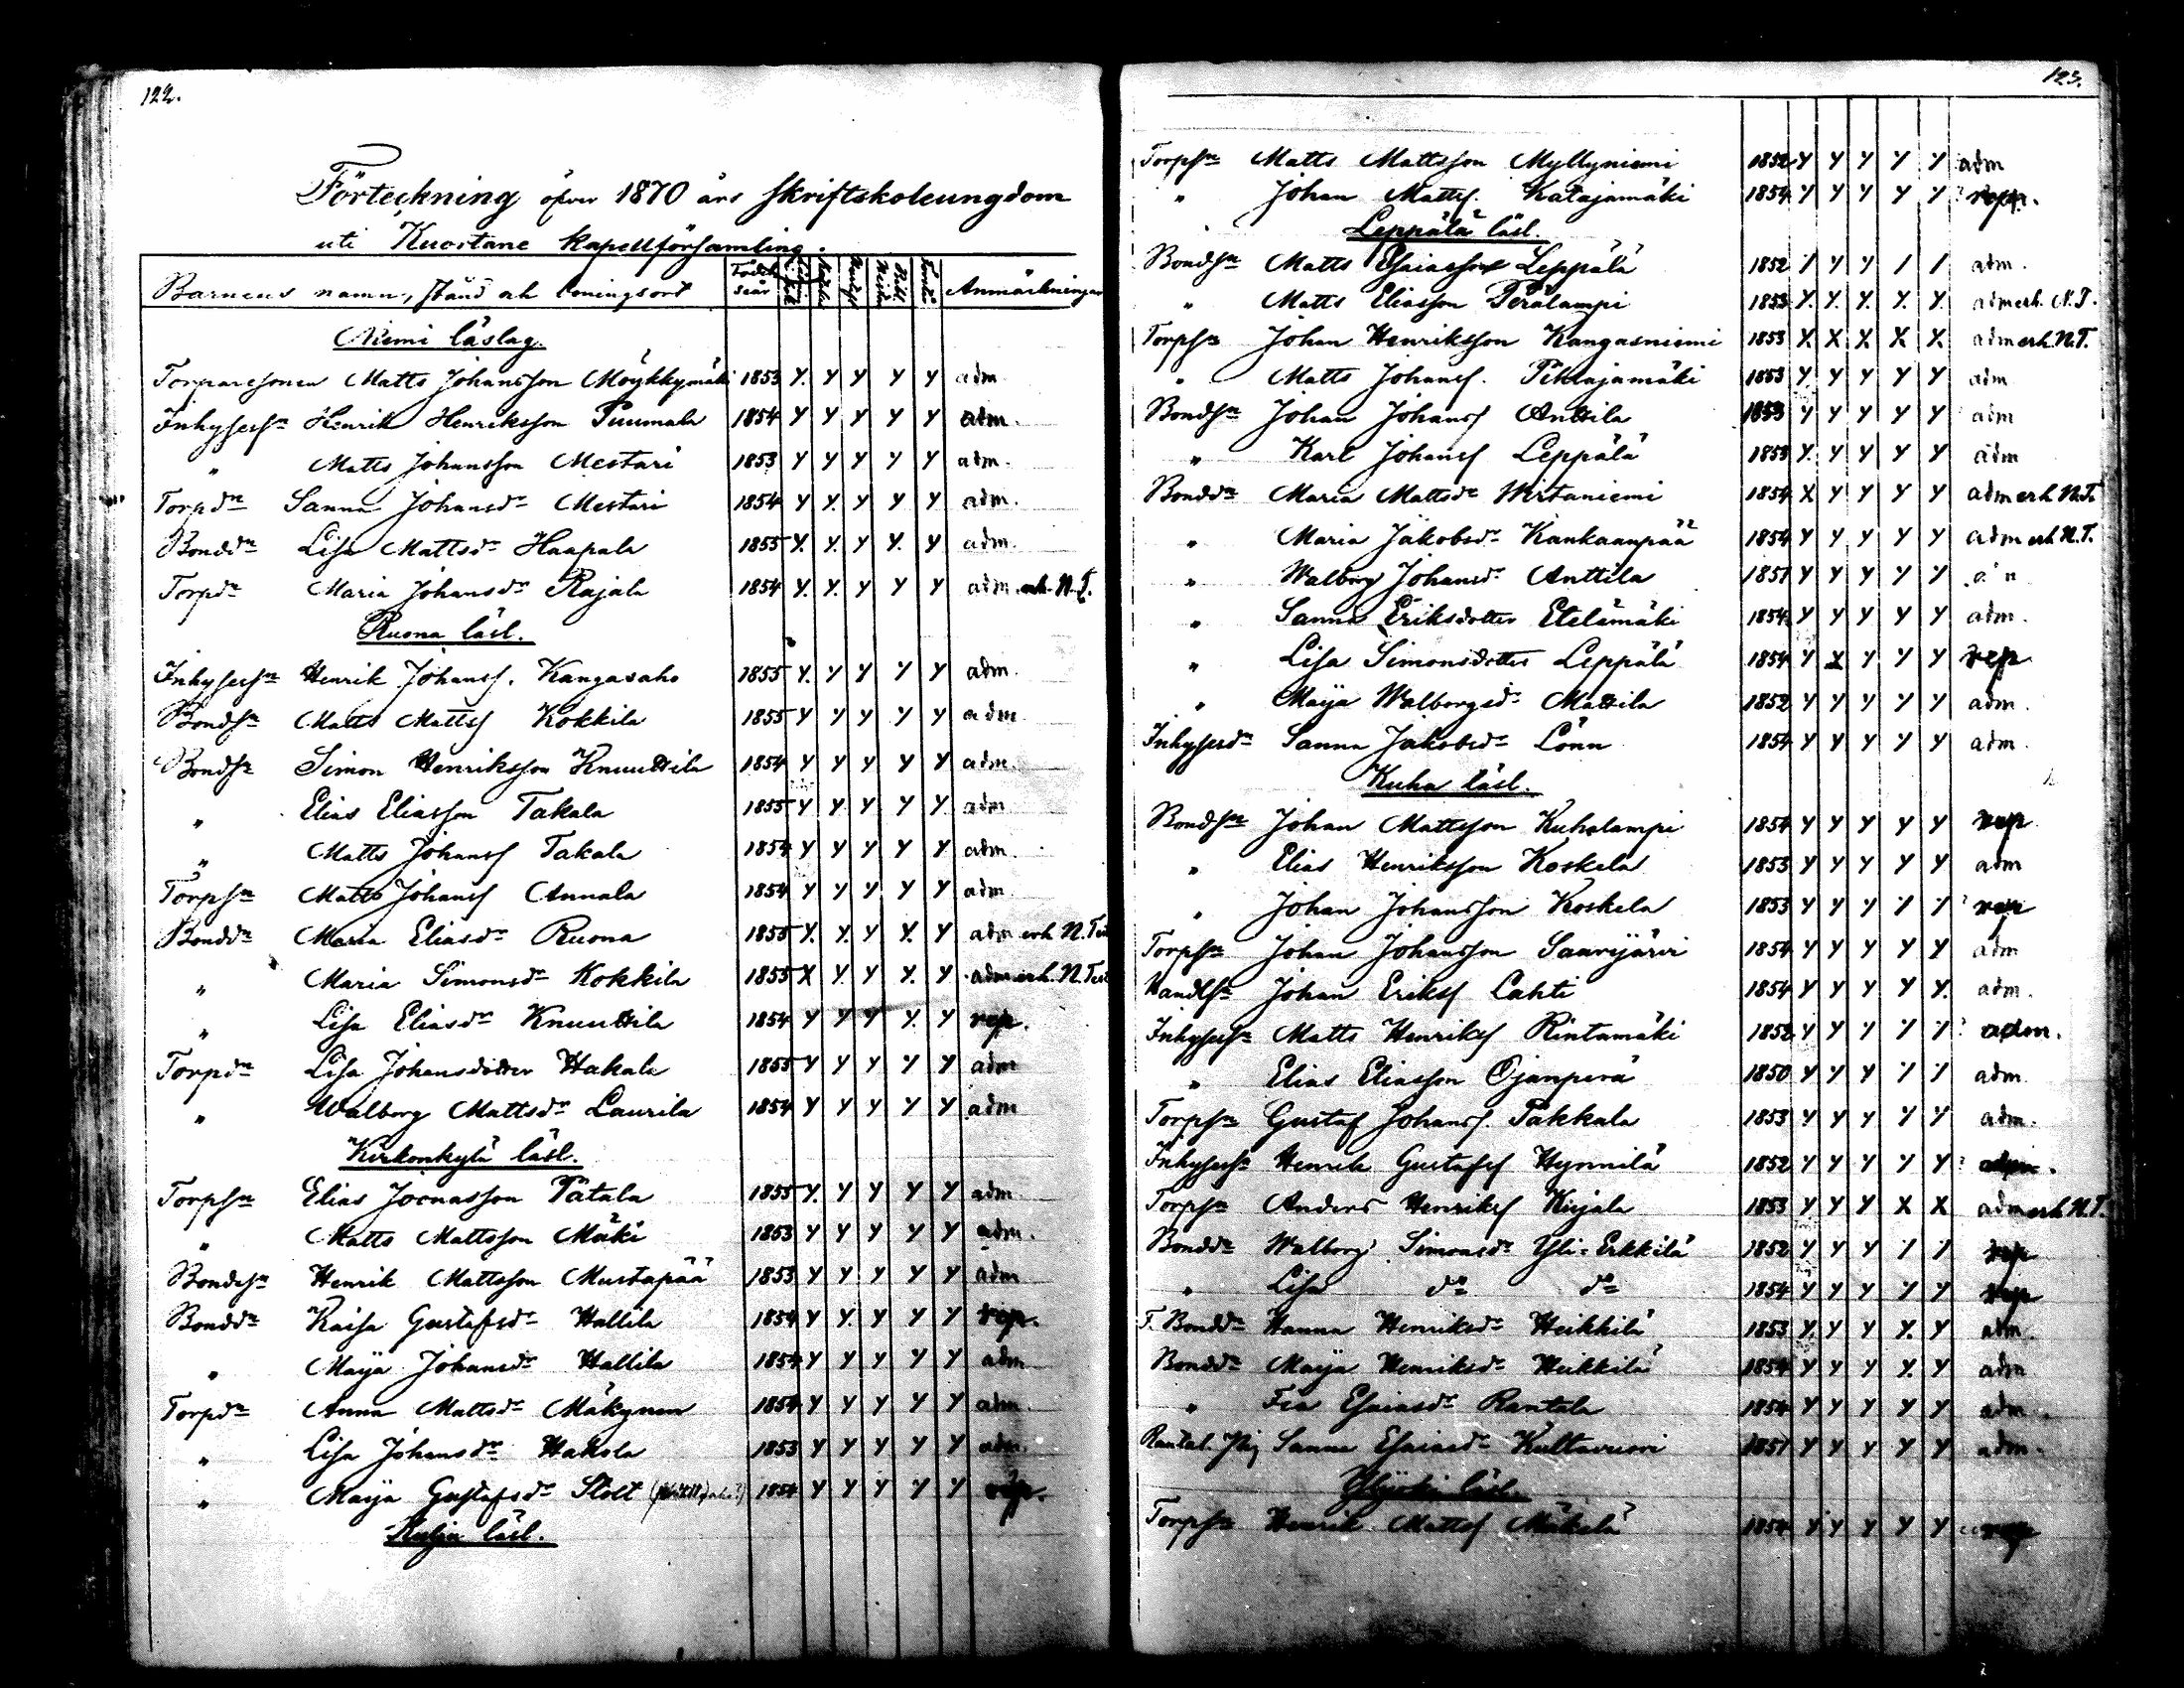 122.
Förteckning öfver 1870 års Skriftskoleungdom
uti Kuortane kapellförsamling.
Barnens namn, stånd och boningsort Födelseår Anmärkningar
Niemi läslag.
Torparesonen Matts Johansson Möykkymäki 1853 Y. Y Y Y Y adm.
Inhysessn Henrik Henriksson Tuumala 1854 Y Y Y Y Y adm.
" Matts Johansson Mestari 1853 Y Y Y Y Y adm.
Torpdn Sanna Johansdr Mestari 1854 Y Y. Y Y Y adm.
Bonddn Lisa Mattsdr Haapala 1855 Y. Y. Y Y. Y adm.
Torpdn Maria Johansdr Rajala 1854 Y. Y. Y Y Y adm. erh. N.T.
Ruona läsl.
Inhysessn Henrik Johanss. Kangasaho 1855 Y. Y Y Y Y adm.
Bondsn Matts Mattss Kokkila 1855 Y Y Y Y Y adm
Bondsn Simon Henriksson Knuuttila 1854 Y Y Y Y Y adm.
" Elias Eliasson Takala 1855 Y Y. Y Y Y adm
" Matts Johanss Takala 1854 Y Y Y Y Y adm.
Torpsn Matts Johanss Annala 1854 Y Y Y Y Y adm
Bonddn Maria Eliasdr Ruona 1855 Y. Y. Y Y. Y adm erh N. Test
" Maria Simonsdr Kokkila 1855 X Y. Y Y. Y adm erh. N. Test
" Lisa Eliasdr Knuuttila 1854 Y Y Y Y. Y rep.
Torpdn Lisa Johansdotter Hakala 1855 Y Y Y Y Y adm
" Walborg Mattsdr Laurila 1854 Y Y Y Y Y adm
Kirkonkylä läsl.
Torpsn Elias Joonasson Pätala 1855 Y. Y Y Y Y adm
" Matts Mattsson Mäki 1853 Y Y Y Y Y adm.
Bondesn Henrik Mattsson Mustapää 1853 Y Y Y Y Y adm
Bonddn Kaisa Gustafsdr Hallila 1854 Y Y. Y Y Y rep.
" Maija Johansdr Hallila 1854 Y Y Y Y Y adm
Torpdn Anna Mattsdr Mäkynen 1854 Y Y Y Y Y adm.
" Lisa Johansdr Hakola 1853 Y Y Y Y Y adm.
" Maija Gustafsdr Stolt 1854 Y Y Y Y Y rep.
läsl.
123.
Torpsn Matts Mattsson Myllyniemi 1852 Y Y Y Y Y adm
" Johan Mattss. Katajamäki 1854 Y Y Y Y Y rep.
Leppälä läsl.
Bondsn Matts Esaiasson Leppälä 1852 / Y Y / / adm.
" Matts Eliasson Perälampi 1853 Y. Y. Y. Y. Y. adm erh. N.T.
Torpsn Johan Henriksson Kangasniemi 1853 X X X X X adm erh. N.T.
" Matts Johanss. Pihlajamäki 1853 Y Y Y Y Y adm
Bondsn Johan Johanss Anttila 1853 Y Y Y Y Y adm
" Karl Johanss Leppälä 1853 Y. Y Y Y Y adm
Bonddn Maria Mattsdr Wirtaniemi 1854 X Y Y Y Y adm erh N.T.
" Maria Jakobsdr Kankaanpää 1854 Y Y Y Y Y adm erh N.T.
" Walborg Johansdr Anttila 1851 Y Y Y Y Y
" Sanna Eriksdotter Etelämäki 1854 Y Y Y Y Y adm.
" Lisa Simonsdotter Leppälä 1854 Y X Y Y Y rep
" Maija Walborgsdr Mattila 1852 Y Y Y Y Y adm.
Inhysesdn Sanna Jakobsdr Lönn 1854 Y Y Y Y Y adm.
Kuha läsl.
Bondsn Johan Mattsson Kuhalampi 1854 Y Y Y Y Y rep
" Elias Henriksson Koskela 1853 Y Y Y Y Y adm
" Johan Johansson Koskela 1853 Y Y Y / / rep
Torpsn Johan Johansson Saarijärvi 1854 Y Y Y Y Y adm
Handlsn Johan Erikss Lahti 1854 Y Y Y Y Y. adm.
Inhysessn Matts Henrikss Rintamäki 1852 Y Y Y / / adm.
" Elias Eliasson Ojanperä 1850 Y Y Y / / adm
Torpsn Gustaf Johanss. Takkala 1853 Y Y Y Y Y adm.
Inhysessn Henrik Gustafss Hynnilä 1852 Y Y Y Y Y
Torpsn Anders Henrikss Kujala 1853 Y Y Y X X adm erh N.T.
Bonddn Walborg Simonsdr Yli-Erkkilä 1852 Y Y Y / / rep
" Lisa do do 1854 Y Y Y Y Y rep
T. Bonddn Hanna Henriksdr Heikkilä 1853 Y. Y Y Y. Y adm.
Bonddn Maija Henriksdr Heikkilä 1854 Y Y Y Y. Y adm
" Fia Esaiasdr Rantala 1854 Y Y Y Y Y adm.
Sanna Esaiasdr Kultavuori 1851 Y Y Y Y Y adm.
läsl.
Torpsn Henrik Mattss Mäkelä 1854 Y Y Y Y Y rep